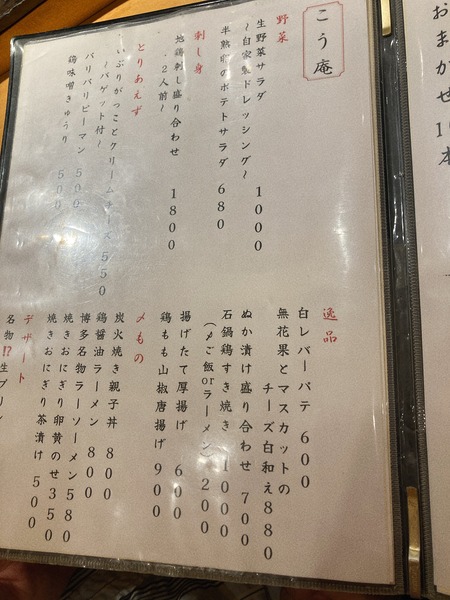 こう庵
野菜
生野菜サラダ
〜自家製ドレッシング〜 1000
半熟卵のポテトサラダ 680
刺し身
地鶏刺し盛り合わせ
2人前〜 1800
とりあえず
いぶりがっことクリームチーズ 550
〜バゲット付〜
パリパリピーマン 500
鶏味噌きゅうり 500
逸品
白レバーパテ 600
無花果とマスカットの
チーズ白和え 880
ぬか漬け盛り合わせ 700
石鍋鶏すき焼き 1000
(〆ご飯orラーメン) 200
揚げたて厚揚げ 600
鶏もも山椒唐揚げ 900
〆もの
炭火焼き親子丼 800
鶏醤油ラーメン 800
博多名物ラーソーメン 580
焼きおにぎり卵黄のせ 350
焼きおにぎり茶漬け 500
デザート
名物!?生プリン
おまかせ
本